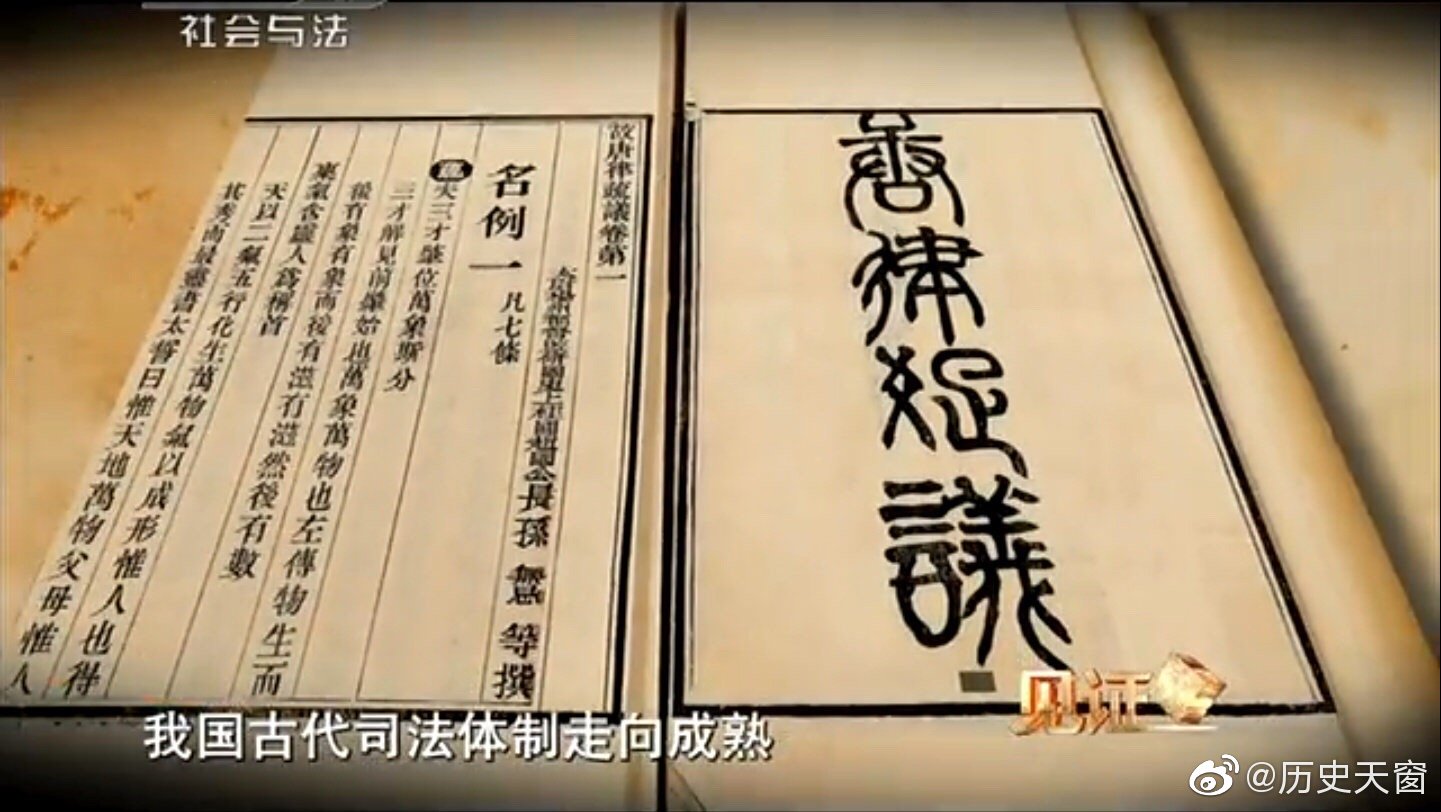 社会与法
唐律疏議
故唐律疏議卷第一
太尉揚州都督監修國史上柱國趙國公長孫無忌等撰
名例一 凡七條
疏夫三才肇位萬象斯分
三才解見前肇始也萬象萬物也左傳物生而
後有象有象而後有滋有滋然後有數
稟氣含靈人爲稱首
天以二氣五行化生萬物氣以成形惟人也得
其秀而最靈書太誓曰惟天地萬物父母惟人
见证
我国古代司法体制走向成熟
@历史天窗